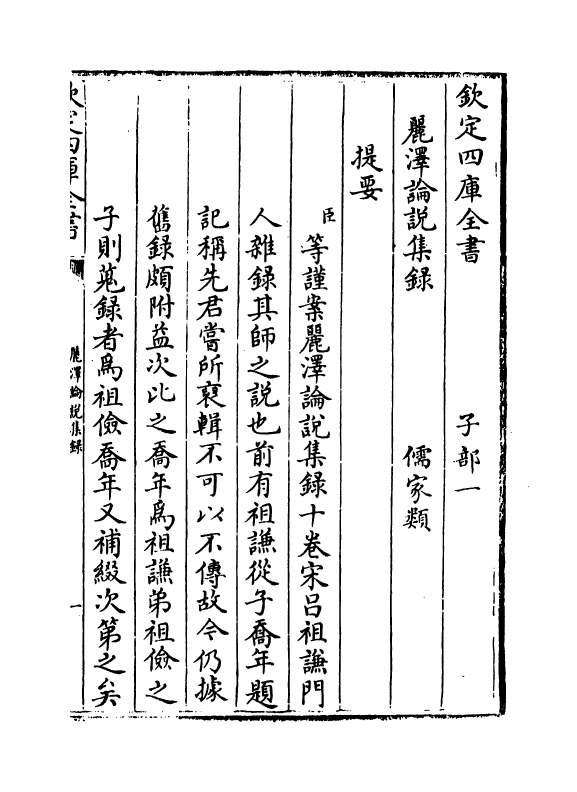 欽定四庫全書　子部一
麗澤論說集録　儒家類
提要
臣等謹案麗澤論說集録十卷宋呂祖謙門
人雜録其師之說也前有祖謙從子喬年題
記稱先君嘗所裒輯不可以不傳故今仍據
舊録頗附益次比之喬年為祖謙弟祖儉之
子則蒐録者為祖儉喬年又補綴次第之矣
欽定四庫全書　麗澤論說集録　一